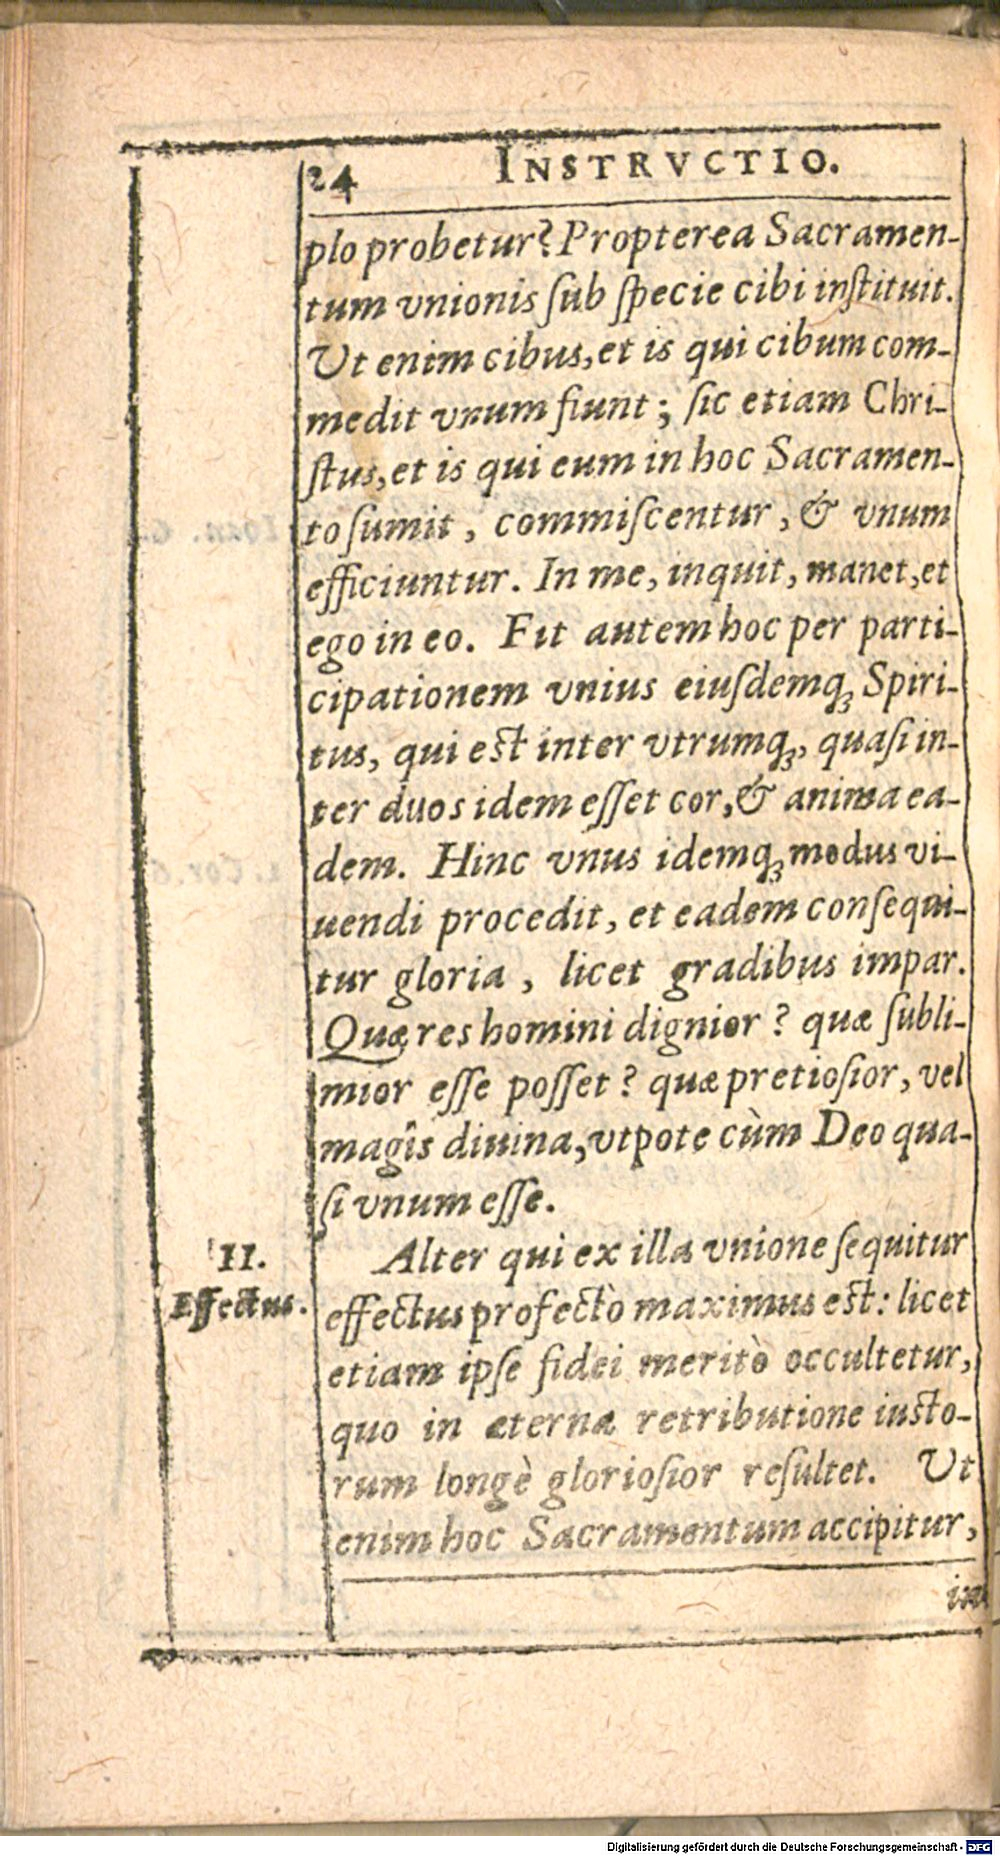 24 INSTRVCTIO.
plo probetur? Propterea Sacramen-
tum vnionis ſub ſpecie cibi inſtituit.
Ut enim cibus, et is qui cibum com-
medit vnum fiunt; ſic etiam Chri-
ſtus, et is qui eum in hoc Sacramen-
to ſumit, commiſcentur, & vnum
efficiuntur. In me, inquit, manet, et
ego in eo. Fit autem hoc per parti-
cipationem vnius eiuſdemq́ꝫ Spiri-
tus, qui eſt inter vtrumq́ꝫ, quaſi in-
ter duos idem eſſet cor, & anima ea-
dem. Hinc vnus idemq́ꝫ modus vi-
uendi procedit, et eadem conſequi-
tur gloria, licet gradibus impar.
Quæ res homini dignior? quæ ſubli-
mior eſſe poſſet? quæ pretioſior, vel
magîs diuina, vtpote cùm Deo qua-
ſi vnum eſſe.
II.
Effectus.
Alter qui ex illa vnione ſequitur
effectus profectò maximus eſt: licet
etiam ipſe fidei meritò occultetur,
quo in æterna retributione iuſto-
rum longè glorioſior reſultet. Ut
enim hoc Sacramentum accipitur,
Digitalisierung gefördert durch die Deutsche Forschungsgemeinschaft - DFG